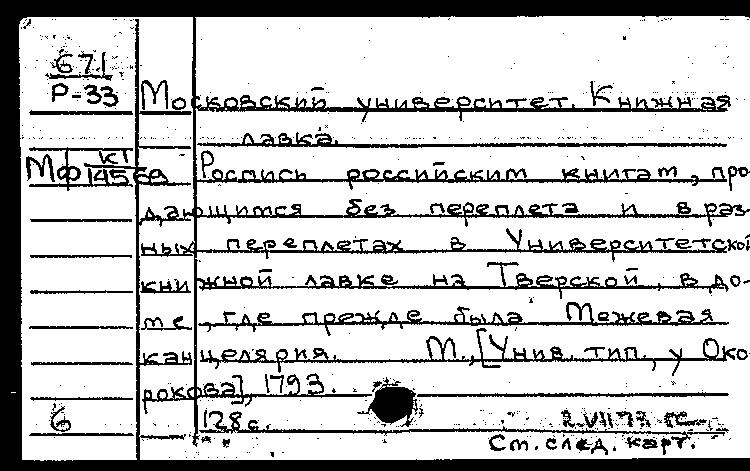 671
Р-33
Московский университет. Книжная
лавка.
Мф КГ
145
Роспись российским книгам, про-
дающимся без переплета и в раз-
ных переплетах в Университетской
книжной лавке на Тверской, в до-
ме, где прежде была Межевая
канцелярия. М., [Унив. тип., у Око-
рокова], 1793.
6
128 с.
2.VII 73
См. след. карт.